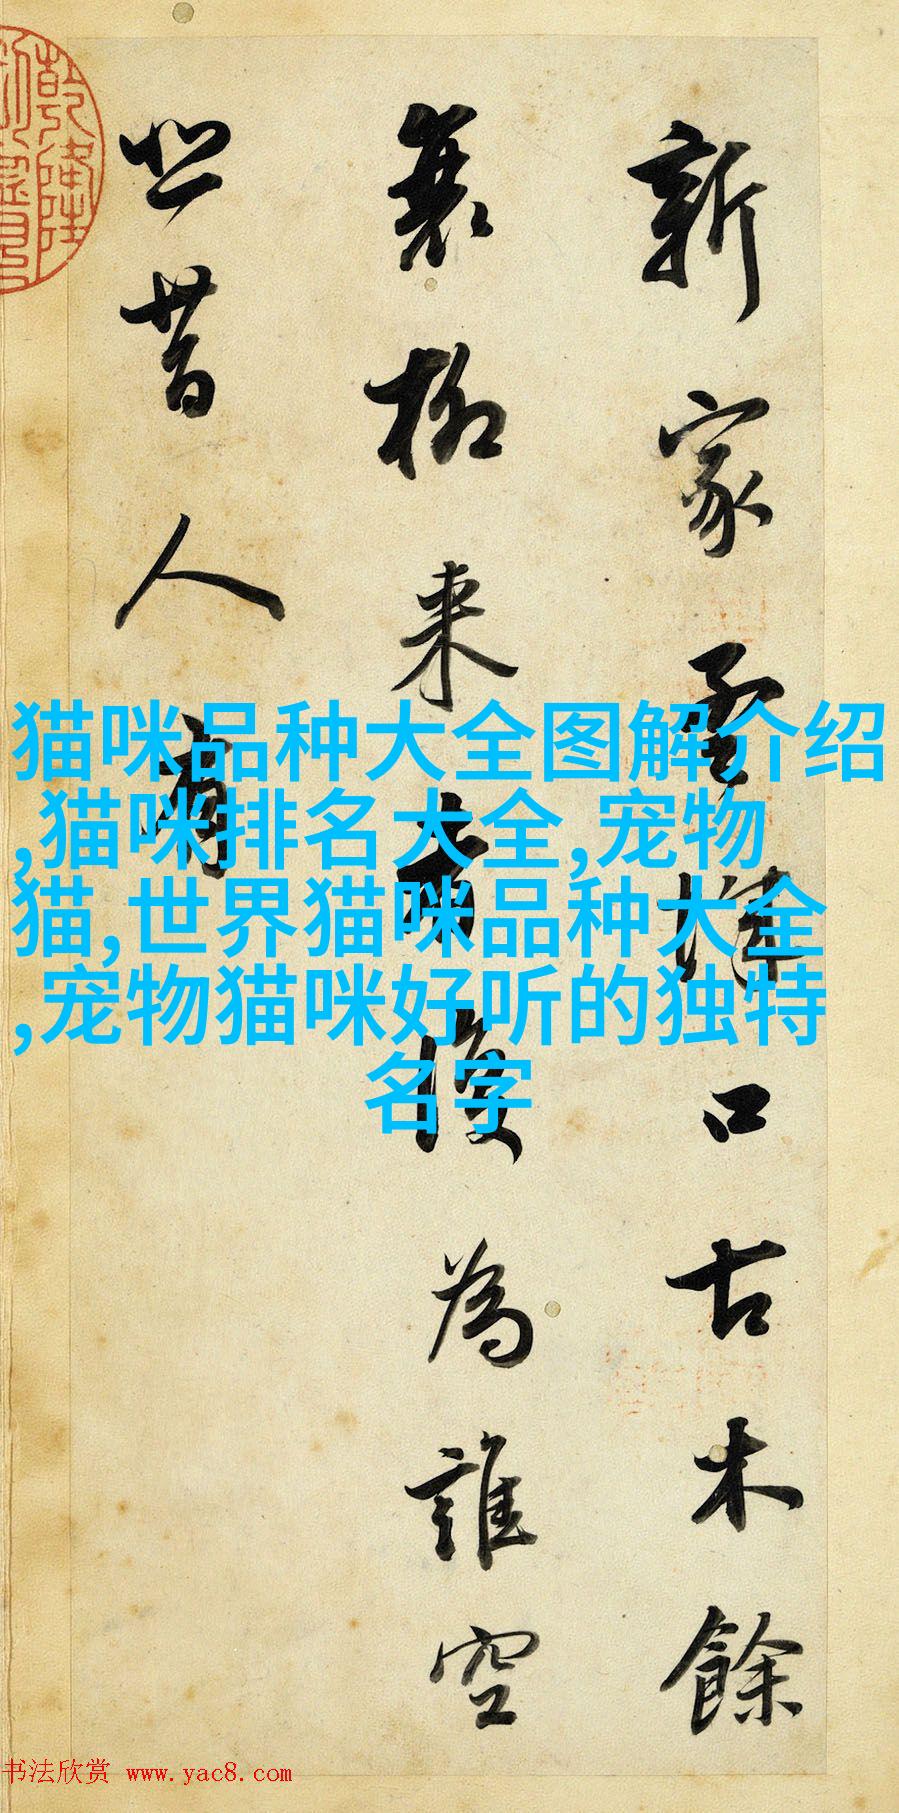 新家孟城口古木餘
衰柳来者復為誰空
悲昔人有
猫咪品种大全图解介绍
,猫咪排名大全,宠物
猫,世界猫咪品种大全
,宠物猫咪好听的独特
名字
书法欣赏 www.yac8.com